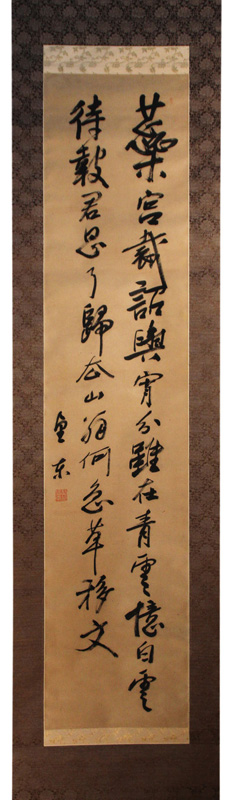 蘂宮裁詔與宵分雖在青雲憶白雲
待報君恩了歸去山翁何急草移文